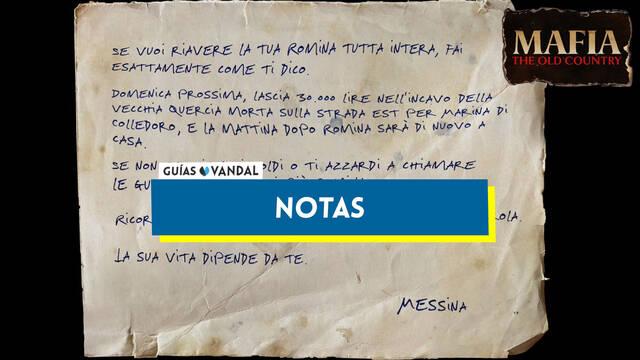 SE VUOI RIAVERE LA TUA ROMINA TUTTA INTERA, FAI
ESATTAMENTE COME TI DICO.
DOMENICA PROSSIMA, LASCIA 30.000 LIRE NELL'INCAVO DELLA
VECCHIA QUERCIA MORTA SULLA STRADA EST PER MARINA DI
COLLEDORO, E LA MATTINA DOPO ROMINA SARÀ DI NUOVO A
CASA.
SE NON OLDI O TI AZZARDI A CHIAMARE
LE
LA SUA VITA DIPENDE DA TE.
MESSINA
GUÍAS VANDAL
NOTAS
MAFIA
THE OLD COUNTRY